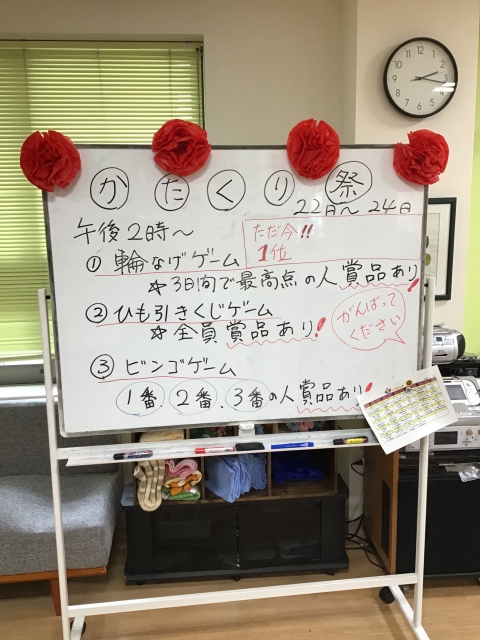 かたくり祭
22日～24日
午後2時～
ただ今!!
1位
① 輪なげゲーム
☆3日間で最高点の人賞品あり!
② ひも引きくじゲーム
☆全員賞品あり!
がんばって
ください
③ ビンゴゲーム
1番、2番、3番の人賞品あり!